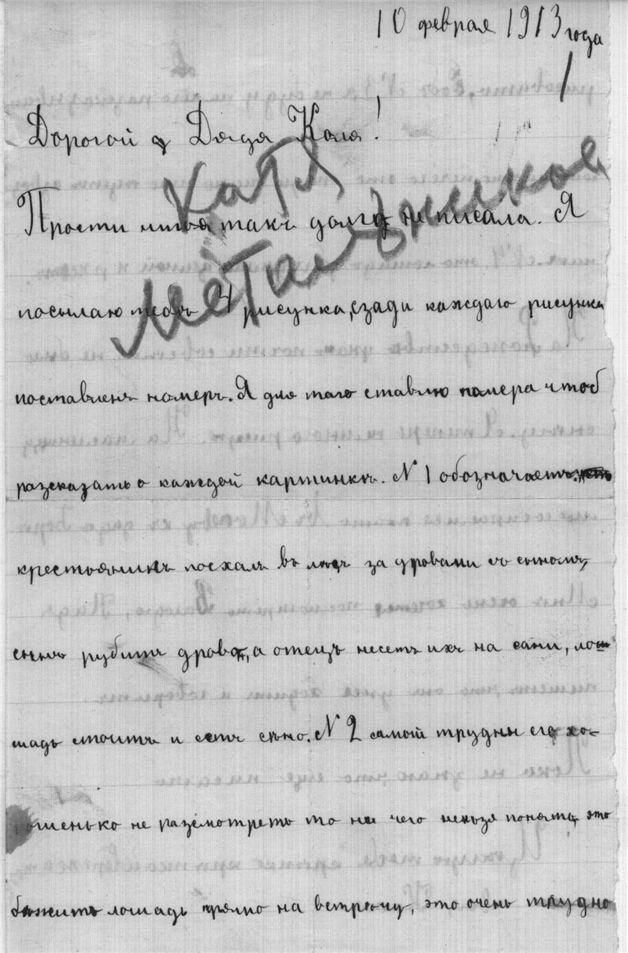 10 февраля 1913 года
Дорогой Дядя Коля!
Катя
Метальникова
Прости меня такъ долго не писала. Я
посылаю тебѣ 4 рисунка, сзади каждаго рисунка
поставленъ номеръ. Я для того ставлю номера чтоб
разсказать о каждой картинкѣ. N 1 обозначаетъ
крестьянинъ поехалъ въ лѣсъ за дровами съ сыномъ,
сынъ рубитъ дрова, а отецъ несетъ ихъ на сани, ло
шадь стоитъ и естъ сѣно. N 2 самой трудны его хо-
рошенько не разсмотреть то ни чего нельзя понять, это
бѣжитъ лошадь прямо на встречу, это очень трудно